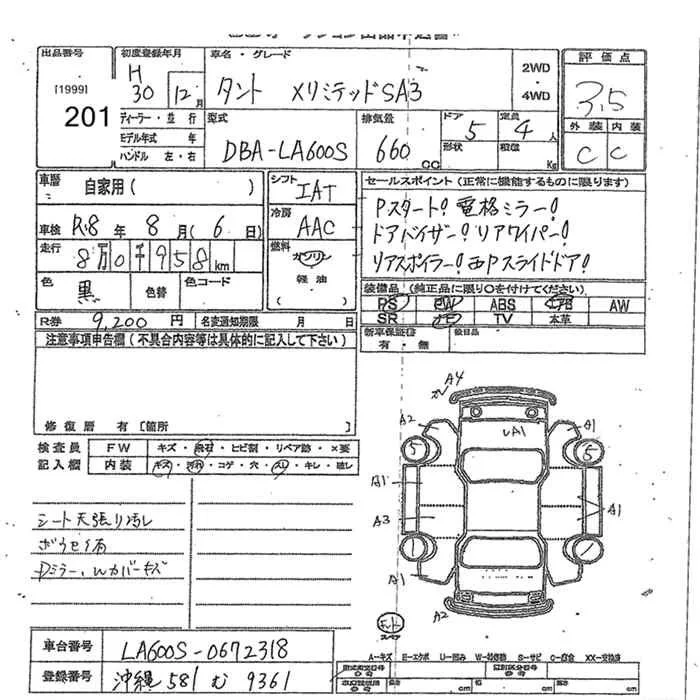 出品番号 初度登録年月 車名・グレード 2WD・4WD 評価点
[1999] 201
H 30 12月 タント Xリミテッド SA3 3.5
ディーラー・並行 型式 排気量 ドア 5 定員 4人 外装 内装
モデル年式 年 DBA-LA600S 660cc 形状 積値 Kg C C
ハンドル 左・右
車歴 自家用( ) シフト IAT セールスポイント(正常に機能するものに限ります)
車検 R.8年 8月(6日) 冷房 AAC Pスタート! 電格ミラー!
走行 8万0千958km 燃料 ガソリン ドアバイザー! リアワイパー!
色 黒 色替 色コード 軽油 ( ) リアスポイラー! 両Pスライドドア!
装備品(純正品に限り○を付けてください)
R券 9,200円 名変通知期限 月 日 PS PW ABS エアB AW
SR ナビ TV 本革
注意事項申告欄(不具合内容等は具体的に記入して下さい) 新車保証書 有・無 後日品
修復歴 有[箇所 ]
検査員記入欄 FW キズ・飛石・ヒビ割・リペア跡・×要
内装 キズ・汚れ・コゲ・穴・スレ・キレ・破レ
シート天張り汚レ
Dミラー、Wカバーキズ
A4
A2 UA1 A1
5 5
A1 A1
A3
A1
A2
スペア
車台番号 LA600S-0672318
登録番号 沖縄 581 む 9361
A-キズ E-エクボ U-凹み W-補修跡 S-サビ C-腐食 XX-交換済